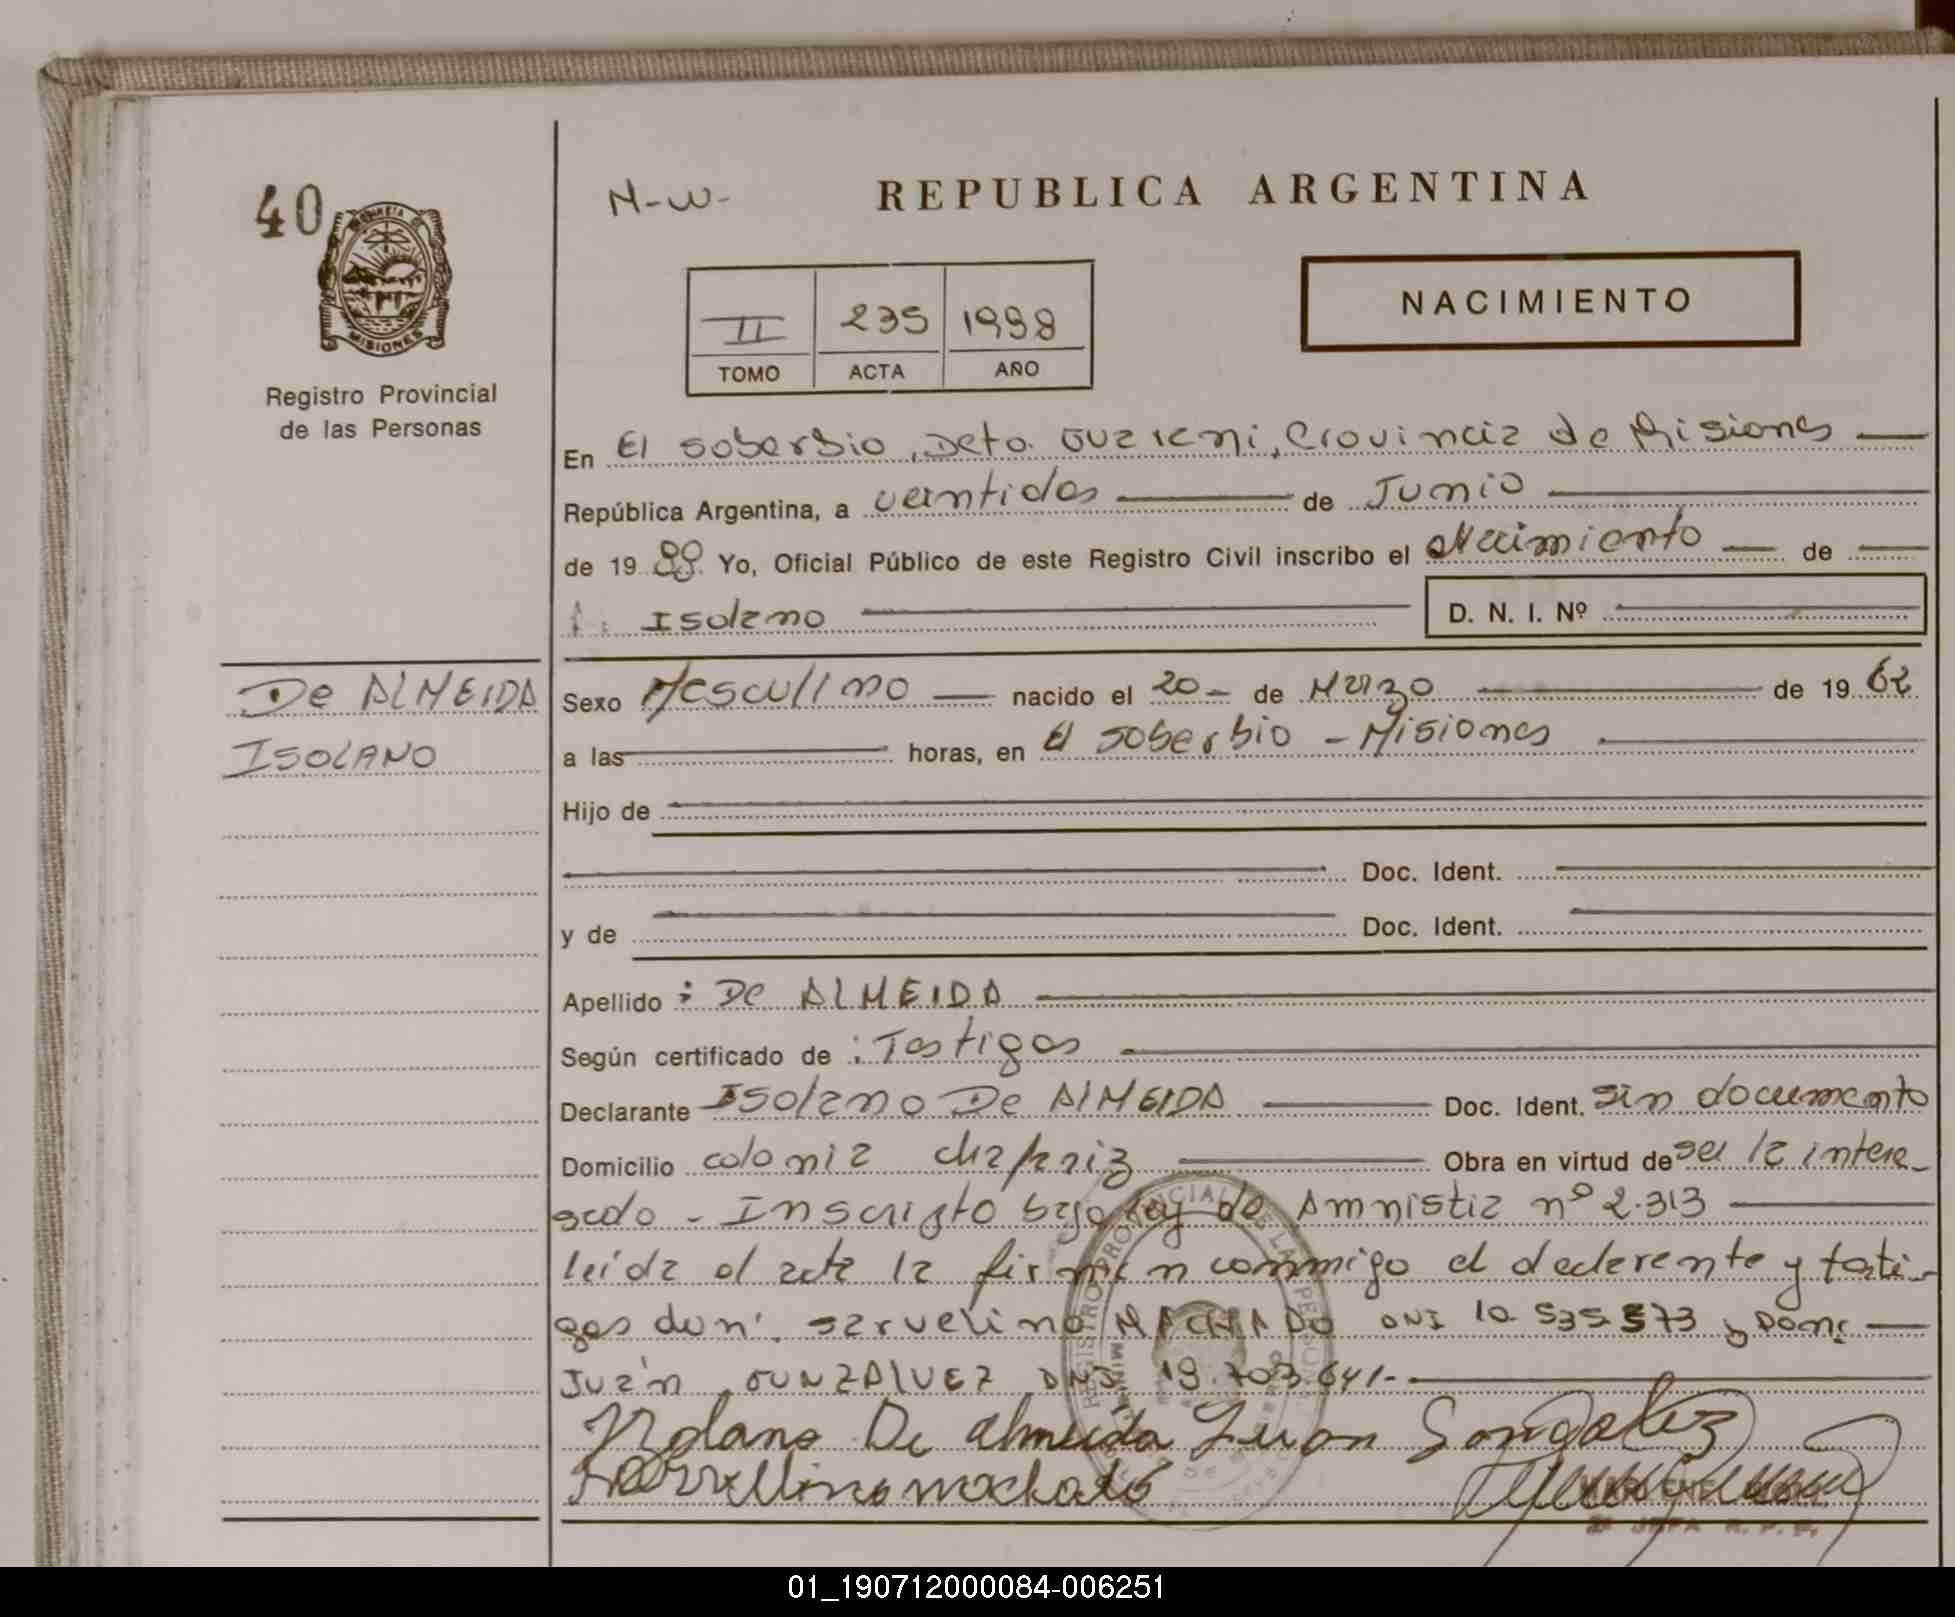 40
PROVINCIA DE
MISIONES
Registro Provincial
de las Personas
N-W-
REPUBLICA ARGENTINA
II 235 1988
TOMO ACTA AÑO
NACIMIENTO
En El soberbio, Dcto. Guarani, Provincia de Misiones
República Argentina, a veintidos de Junio
de 1988 Yo, Oficial Público de este Registro Civil inscribo el Nacimiento de
Isolano D. N. I. Nº
De ALMEIDA
ISOLANO
Sexo Masculino nacido el 20 - de Marzo de 1962
a las horas, en El soberbio - Misiones
Hijo de
Doc. Ident.
y de Doc. Ident.
Apellido : De ALMEIDA
Según certificado de : Testigos
Declarante Isolano De AlMEIDA Doc. Ident. sin documento
Domicilio colonia chafariz Obra en virtud de ser la intere-
sado - Inscripto bajo Ley de Amnistia nº 2.313
leída el acta la firman conmigo el declarante y testi-
gos don: sarvelino MACHADO DNI 10.535.573 y Don:
Juan GONZALVEZ DNI 19.703.641-
Izolano De almeida Juan Gongalvez
Sarvellino machado
2ª JEFA R. P. P.
REGISTRO PROVINCIAL DE LAS PERSONAS
01_190712000084-006251